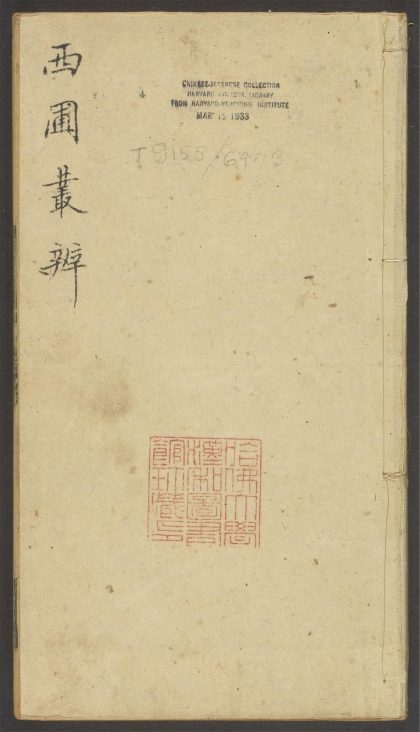 西圃叢辨
CHINESE-JAPANESE COLLECTION
HARVARD COLLEGE LIBRARY
FROM HARVARD-YENCHING INSTITUTE
MAR 15 1933
哈佛大學
漢和圖書
館珍藏印